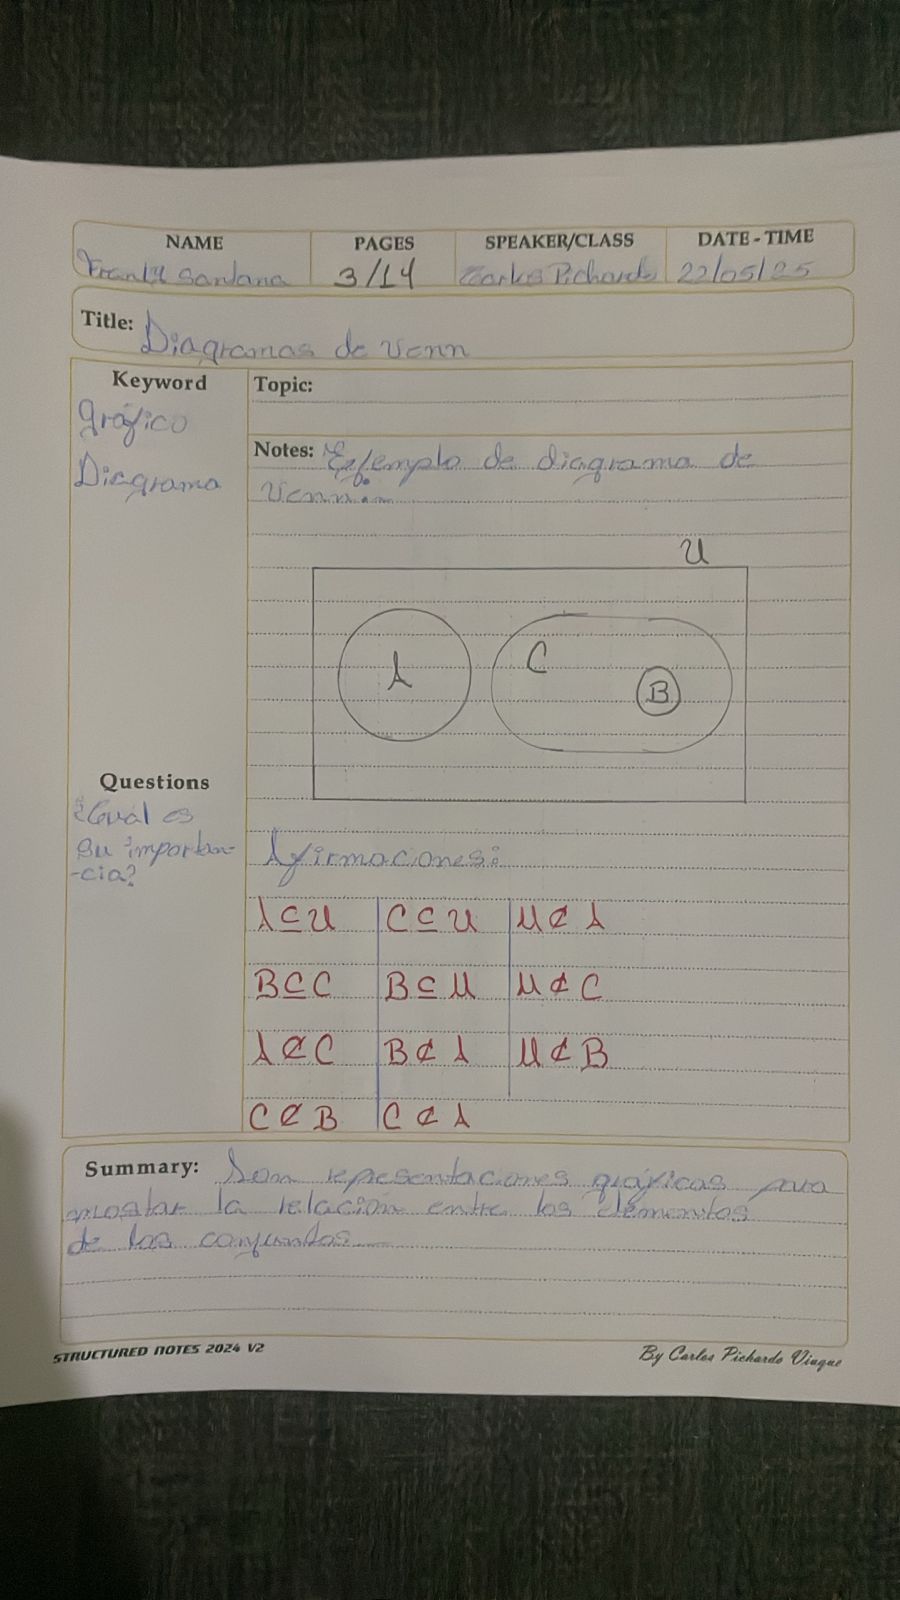 NAME PAGES SPEAKER/CLASS DATE - TIME
Santana 3/14 Carlos Pichardo 22/05/25
Title: Diagramas de Venn
Keyword
gráfico
Diagrama
Topic:
Notes: Ejemplo de diagrama de
Venn:
U
A C B
Questions
¿Cuál es
su importan-
-cia?
Afirmaciones:
A ⊆ U C ⊆ U U ⊄ A
B ⊆ C B ⊆ U U ⊄ C
A ⊄ C B ⊄ A U ⊄ B
C ⊄ B C ⊄ A
Summary: Son representaciones gráficas para
mostar la relación entre los elementos
de los conjuntos
STRUCTURED NOTES 2024 V2
By Carlos Pichardo Viuque